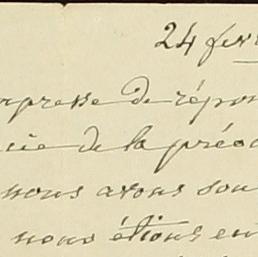 24 fev
mpresse de répon
cie de la préoc
nous avons son
nous étions en